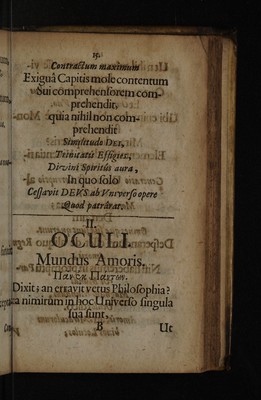 25.
Contractum maximum
Exiguâ Capitis mole contentum
Sui comprehensorem com-
prehendit,
quia nihil non com-
prehendit
Similitudo DEI,
Trinitatis Effigies,
Divini Spiritûs aura,
In quo solo
Cessavit DEVS ab Vniverso opere
Quod patrârat.
II.
OCULI.
Mundus Amoris.
Dixit; an erravit vetus Philosophia?
nimirum in hoc Universo singula
sua sunt,
B Ut